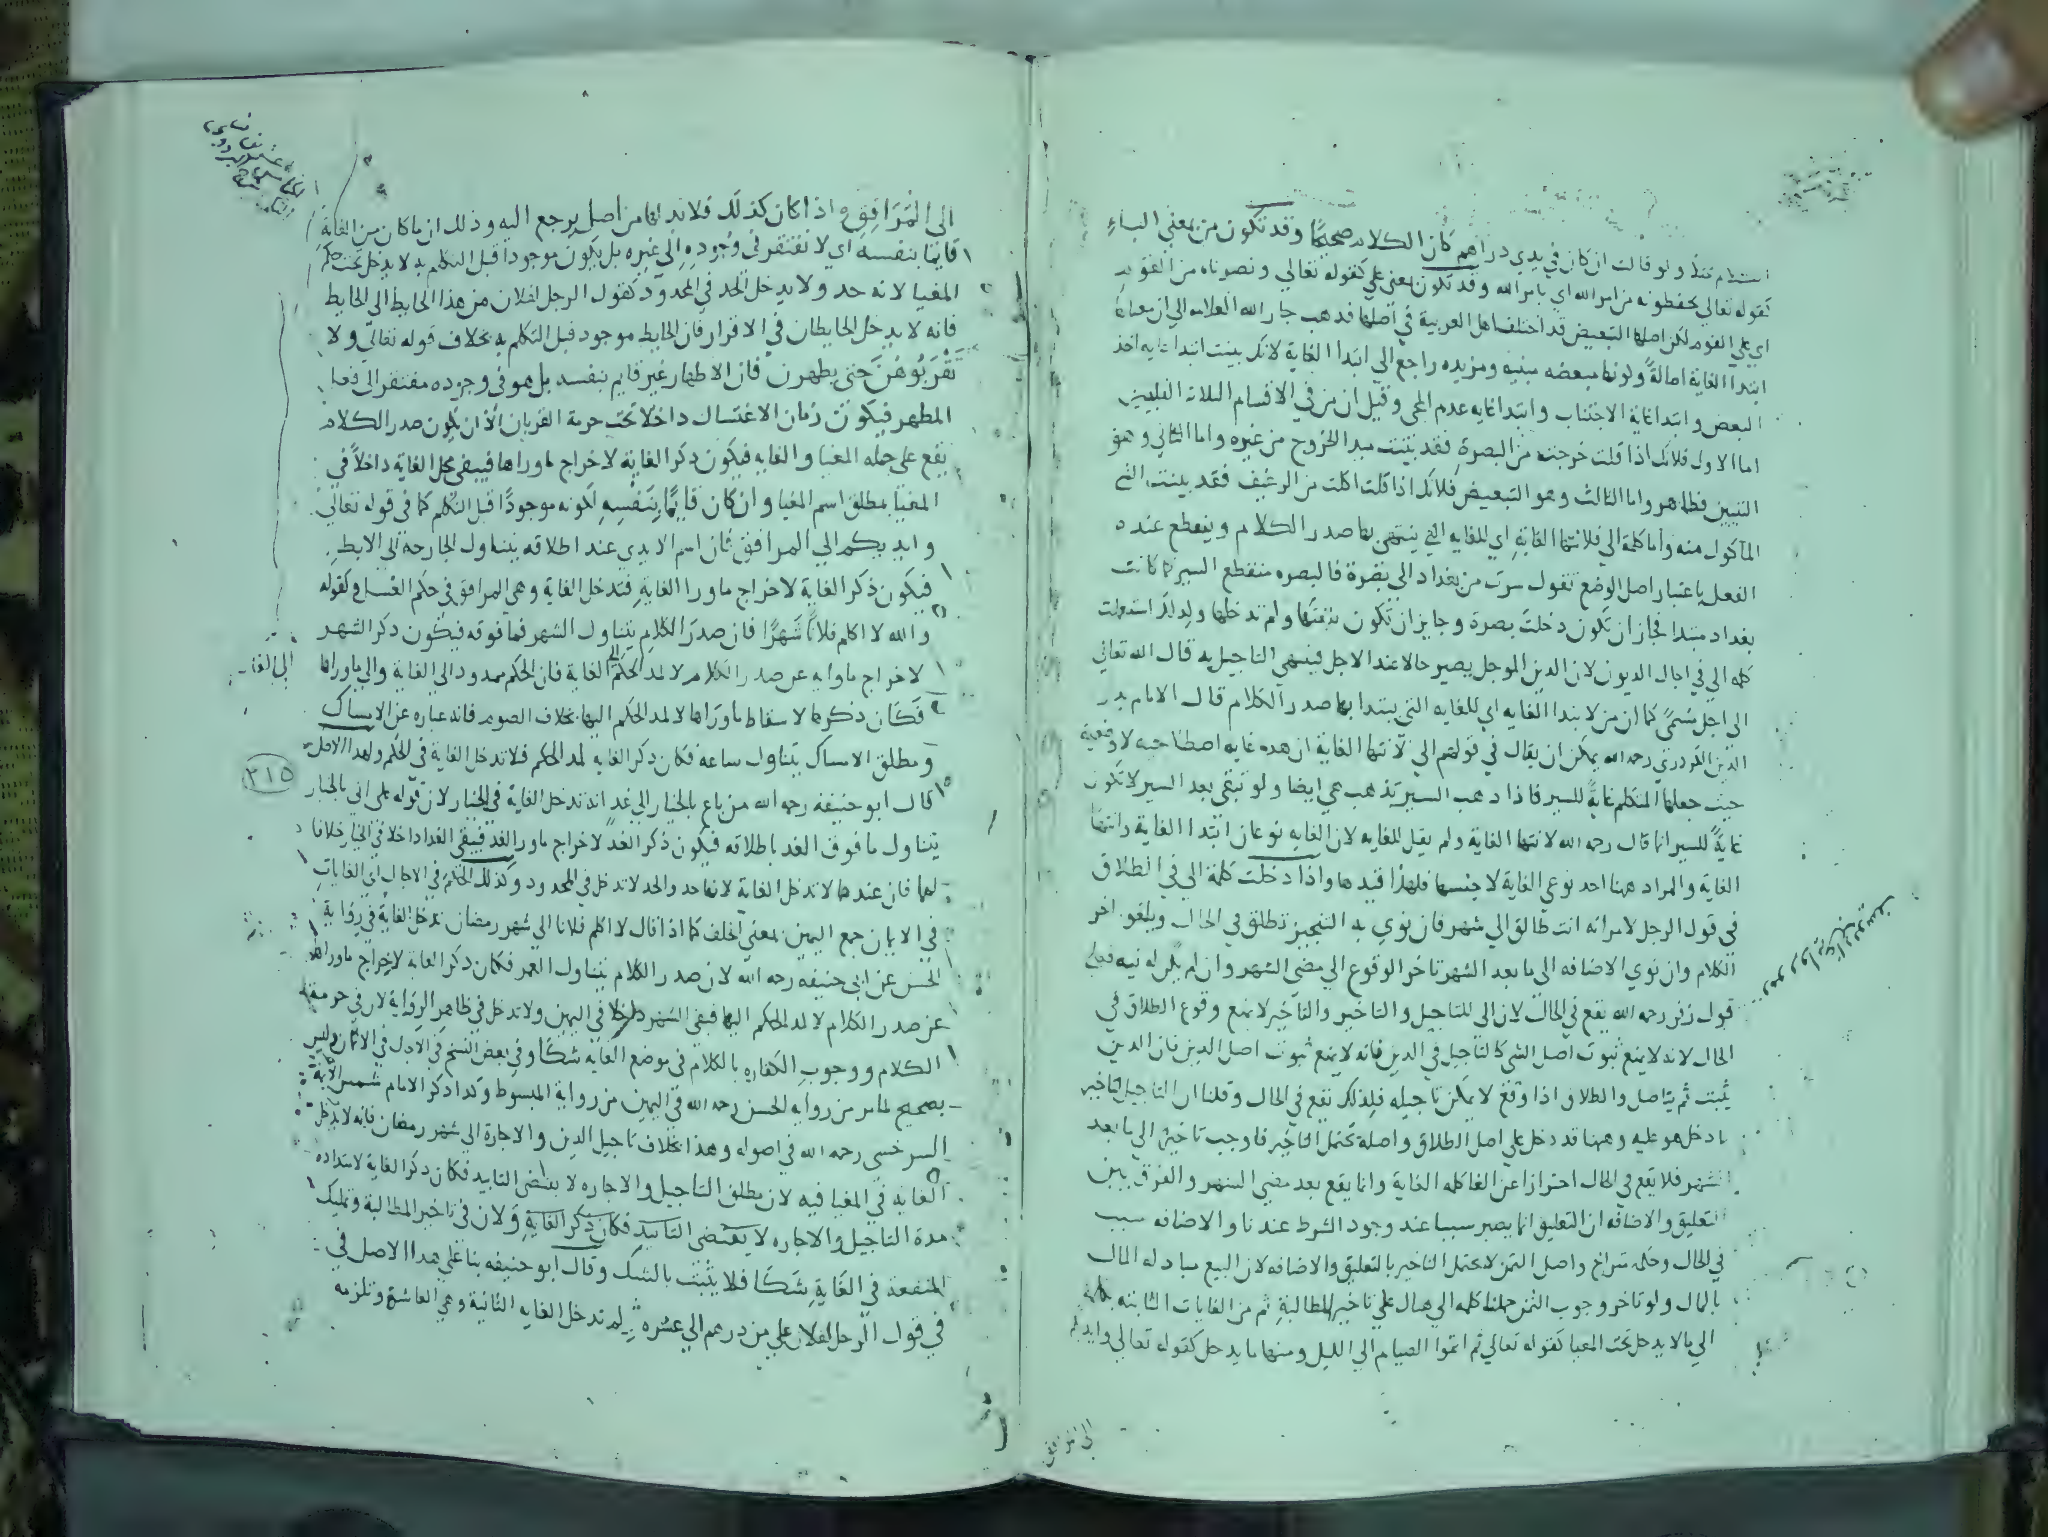 ولو قالت ان كان في يدي دراهم كان الكلام صحيحا وقد تكون من بمعني الباء
كقوله تعالي يحفظونه من امر الله اي بامر الله وقد تكون بمعني علي كقوله تعالي ونصرناه من القوم
اي علي القوم لكن اصلها التبعيض قد اختلف اهل العربية في اصلها فذهب جار الله العلامه الي ان معناها
ابتدا الغاية اصالةً وكونها مبعضه مبنيه ومزيده راجع الي ابتدا الغاية لانك بينت ابتدا غايه اخذ
البعض وابتدا غاية الاجتناب وابتدا غايه عدم المجي وقيل ان من في الاقسام الثلاثه للتبيين
اما الاول فلانك اذا قلت خرجت من البصرة فقد بينت مبدا الخروج من غيره واما الثاني وهو
التبيين فظاهر واما الثالث وهو التبعيض فلانك اذا قلت اكلت من الرغيف فقد بينت الشي
المأكول منه وأما كلمة الي فلانتها الغايةِ اي للغايه التي ينتهي بها صدر الكلام وينقطع عنده
الفعل باعتبار اصل الوضع تقول سرت من بغداد الي بصرة فالبصره منقطع السير كما كانت
بغداد مبتدا فجاز ان تكون دخلت بصرة وجايز ان تكون بلغتها ولم تدخلها ولذلك استعملت
كلمه الي في اجال الديون لان الدين الموجل يصير حالا عند الاجل فينتهي التاجيل به قال الله تعالي
الي اجل مسمًى كما ان من لابتدا الغايه اي للغايه التي يبتدا بها صدر الكلام قال الامام بدر
الدين الكردري رحمه الله يمكن ان يقال في قولهم الي لانتها الغاية ان هذه غايه اصطلاحيه لا وضعية
حيث جعلها المتكلم غايةً للسير فاذا ذهب السير تذهب هي ايضا ولو تبقي بعد السير لا تكون
غايةً للسير انما قال رحمه الله لانتها الغاية ولم يقل للغايه لان الغايه نوعان ابتدا الغاية وانتها
الغاية والمراد ههنا احد نوعي الغاية لا جنسها فلهذا قيدها واذا دخلت كلمة الي في الطلاق
في قول الرجل لامراته انت طالق الي شهر فان نوي به التنجيز تطلق في الحال ويلغو اخر
الكلام وان نوي الاضافه الي ما بعد الشهر تاخر الوقوع الي مضي الشهر وان لم يكن له نيه فعلي
قول زفر رحمه الله يقع في الحال لان الي للتاجيل والتاخير والتأخير لا يمنع وقوع الطلاق في
الحال لانه لا يمنع ثبوت اصل الشي كالتاجيل في الدين فانه لا يمنع ثبوت اصل الدين فان الدين
يثبت ثم يتاجل والطلاق اذا وقع لا يمكن تاجيله فلذلك يقع في الحال وقلنا ان التاجيل لتاخير
ما دخل هو عليه وههنا قد دخل علي اصل الطلاق واصله يحتمل التاخير فاوجب تاخيره الي ما بعد
الشهر فلا يقع في الحال احترازا عن الغا كلمه الغاية وانما يقع بعد مضي الشهر والفرق بين
التعليق والاضافه ان التعليق انما يصير سببا عند وجود الشرط عندنا والاضافه سبب
في الحال وحكمه متراخ واصل الثمن لا يحتمل التاخير بالتعليق والاضافه لان البيع مبادله المال
بالمال ولو تاخر وجوب الثمن حملنا كلمه الي هنالك علي تاخير المطالبةِ ثم من الغايات الثابته بكلمة
الي ما لا يدخل تحت المغيا كقوله تعالي ثم اتموا الصيام الي الليل ومنها ما يدخل كقوله تعالي وايديكم
الي المرافق
الي المَرَافِقِ اذا كان كذلك فلا بد لها من أصل يرجع اليه وذلك ان ما كان من الغايةِ
قايما بنفسه أي لا تفتقر في وجودهِ الي غيره بل يكون موجودا قبل التكلم به لا يدخل تحت حكم
المغيا لانه حد ولا يدخل الحد في المحدود كقول الرجل لفلان من هذا الحايط الي الحايط
فانه لا يدخل الحايطان في الاقرار فان الحايط موجود قبل التكلم به بخلاف قوله تعالي ولا
تَقْرَبُوهُنَّ حتي يطهرن فان الاطهار غير قايم بنفسه بل هو في وجوده مفتقر الي فعل
المطهر فيكون زمان الاغتسال داخلا تحت حرمة القربان الا ان يكون صدر الكلام
يقع علي جمله المغيا والغايه فيكون ذكر الغاية لاخراج ما وراها فيبقي محل الغاية داخلاً في
المغيا بمطلق اسم المغيا وان كان قايمًا بِنَفْسِهِ لكونه موجودًا قبل التكلم كما في قوله تعالي
وايديكم الي المرافق فان اسم الايدي عند اطلاقه يتناول الجارحة الي الابطِ
فيكون ذكر الغاية لاخراج ما ورا الغايةِ فتدخل الغاية وهي المرافق في حكم الغسل وكقوله
والله لا اكلم فلانًا شَهرًا فان صدرَ الكلامِ يتناول الشهر فما فوقه فيكون ذكر الشهر
لاخراج ما وراه عن صدر الكلام لا لمد الحكم الي الغاية فان الحكم ممدود الي الغاية والي ما وراها
فكان ذكرها لاسقاط ما وَرَاها لا لمد الحكم اليها بخلاف الصوم فانه عباره عن الامساك
ومطلق الامساك يتناول ساعه فكان ذكر الغايه لمد الحكم فلا تدخل الغاية في الحكم ولهذا الاصل
٣١٥
قال ابو حنيفه رحمه الله من باع بالخيار الي غد انه تدخل الغاية في الخيار لان قوله علي اني بالخيار
يتناول ما فوق الغد باطلاقه فيكون ذكر الغد لاخراج ما ورا الغد فيبقي الغد داخلا في الخيار خلافا
لهما فان عندهما لا تدخل الغاية لانها حد والحد لا تدخل في المحدود وكذلك الحكم في الاجال اي الغايات
في الايمان جمع اليمين بمعني الحلف كما اذا قال لا اكلم فلانا الي شهر رمضان تدخل الغاية في رواية
الحسن عن ابي حنيفه رحمه الله لان صدر الكلام يتناول العمر فكان ذكر الغاية لاخراج ما وراها
عن صدر الكلام لا لمد الحكم اليها فبقي الشهر داخلا في اليمين ولا تدخل في ظاهر الروايةِ لان في حرمة
الكلام ووجوبِ الكفاره بالكلام في موضع الغاية شكًا وفي بعض النسخ في الاجال في الاثمان وليس
بصحيح لما مر من روايه الحسن رحمه الله في اليمين من رواية المبسوط وكذا ذكر الامام شمس الأئمة
السرخسي رحمه الله في اصوله وهذا بخلاف تاجيل الدين والاجارة الي شهر رمضان فانه لا يدخل
الغايه في المغيا فيه لان مطلق التاجيل والاجاره لا يقتضي التابيد فكان ذكر الغاية لامتداده
مدة التاجيل والاجاره لا يقتضي التابيد فكان ذكر الغايةِ ولان في تاخير المطالبة وتمليك
المنفعة في الغَايةِ شَكًا فلا يثبت بالشك وقال ابو حنيفه بنا علي هذا الاصل في
في قول الرجل لفلان علي من درهم الي عشره لم تدخل الغايه الثانية وهي العاشرة وتلزمه